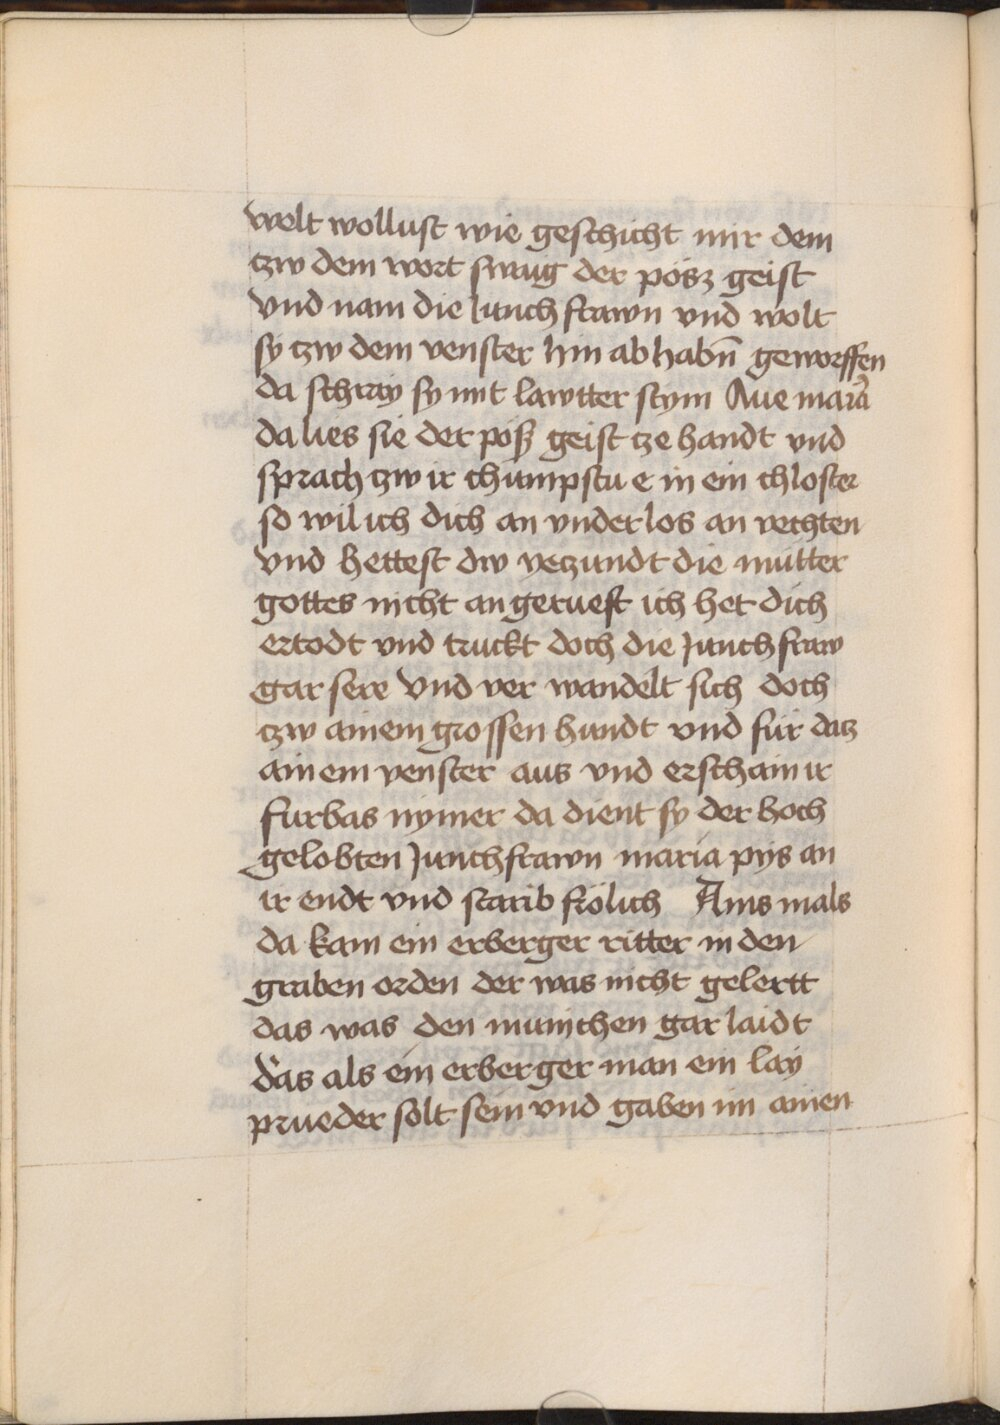 welt wollust wie geschicht mir dem
czw dem wort swaig der pösz geist
vnd nam die Junchfrawn vnd wolt
sy czw dem venster hin ab habn̄ geworffen
da schray sy mit lawtter stym Aue maria
da lies sie der pöß geist cze handt vnd
sprach czw ir chumpstu e in ein chloster
so wil ich dich an vnderlos an vechten
vnd hettest dw yeczundt die mutter
gottes nicht angerueft ich het dich
ertodt vnd truckt doch die Junchfraw
gar sere vnd ver wandelt sich doch
czw ainem grossen hundt vnd fur dacz
ainem venster aus vnd erschain ir
furbas nymer da dient sy der hoch
gelobten Junchfrawn maria pys an
ir endt vnd starib frölich Ains mals
da kam ein erberger ritter in den
graben orden der was nicht gelertt
das was den munichen gar laidt
das als ein erberger man ein lay
prueder solt sein vnd gaben im ainen